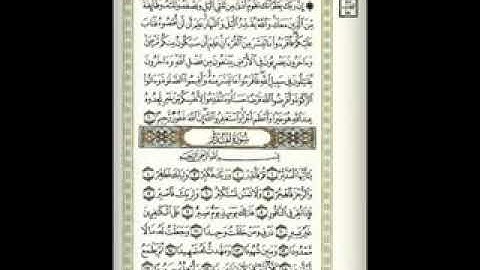 ۞ إِنَّ رَبَّكَ يَعْلَمُ أَنَّكَ تَقُومُ أَدْنَىٰ مِن ثُلُثَيِ ٱلَّيْلِ وَنِصْفَهُۥ وَثُلُثَهُۥ وَطَآئِفَةٌ
مِّنَ ٱلَّذِينَ مَعَكَ ۚ وَٱللَّهُ يُقَدِّرُ ٱلَّيْلَ وَٱلنَّهَارَ ۚ عَلِمَ أَن لَّن تُحْصُوهُ فَتَابَ
عَلَيْكُمْ ۖ فَٱقْرَءُوا۟ مَا تَيَسَّرَ مِنَ ٱلْقُرْءَانِ ۚ عَلِمَ أَن سَيَكُونُ مِنكُم مَّرْضَىٰ
وَءَاخَرُونَ يَضْرِبُونَ فِى ٱلْأَرْضِ يَبْتَغُونَ مِن فَضْلِ ٱللَّهِ ۙ وَءَاخَرُونَ
يُقَٰتِلُونَ فِى سَبِيلِ ٱللَّهِ ۖ فَٱقْرَءُوا۟ مَا تَيَسَّرَ مِنْهُ ۚ وَأَقِيمُوا۟ ٱلصَّلَوٰةَ وَءَاتُوا۟
ٱلزَّكَوٰةَ وَأَقْرِضُوا۟ ٱللَّهَ قَرْضًا حَسَنًا ۚ وَمَا تُقَدِّمُوا۟ لِأَنفُسِكُم مِّنْ خَيْرٍ تَجِدُوهُ
عِندَ ٱللَّهِ هُوَ خَيْرًا وَأَعْظَمَ أَجْرًا ۚ وَٱسْتَغْفِرُوا۟ ٱللَّهَ ۖ إِنَّ ٱللَّهَ غَفُورٌ رَّحِيمٌۢ ٢٠
سُورَةُ المُدَّثِّرِ
بِسْمِ ٱللَّهِ ٱلرَّحْمَٰنِ ٱلرَّحِيمِ
يَٰٓأَيُّهَا ٱلْمُدَّثِّرُ ١ قُمْ فَأَنذِرْ ٢ وَرَبَّكَ فَكَبِّرْ ٣ وَثِيَابَكَ فَطَهِّرْ ٤
وَٱلرُّجْزَ فَٱهْجُرْ ٥ وَلَا تَمْنُن تَسْتَكْثِرُ ٦ وَلِرَبِّكَ فَٱصْبِرْ ٧
فَإِذَا نُقِرَ فِى ٱلنَّاقُورِ ٨ فَذَٰلِكَ يَوْمَئِذٍ يَوْمٌ عَسِيرٌ ٩ عَلَى ٱلْكَٰفِرِينَ
غَيْرُ يَسِيرٍ ١٠ ذَرْنِى وَمَنْ خَلَقْتُ وَحِيدًا ١١ وَجَعَلْتُ لَهُۥ مَالًا
مَّمْدُودًا ١٢ وَبَنِينَ شُهُودًا ١٣ وَمَهَّدتُّ لَهُۥ تَمْهِيدًا ١٤ ثُمَّ يَطْمَعُ